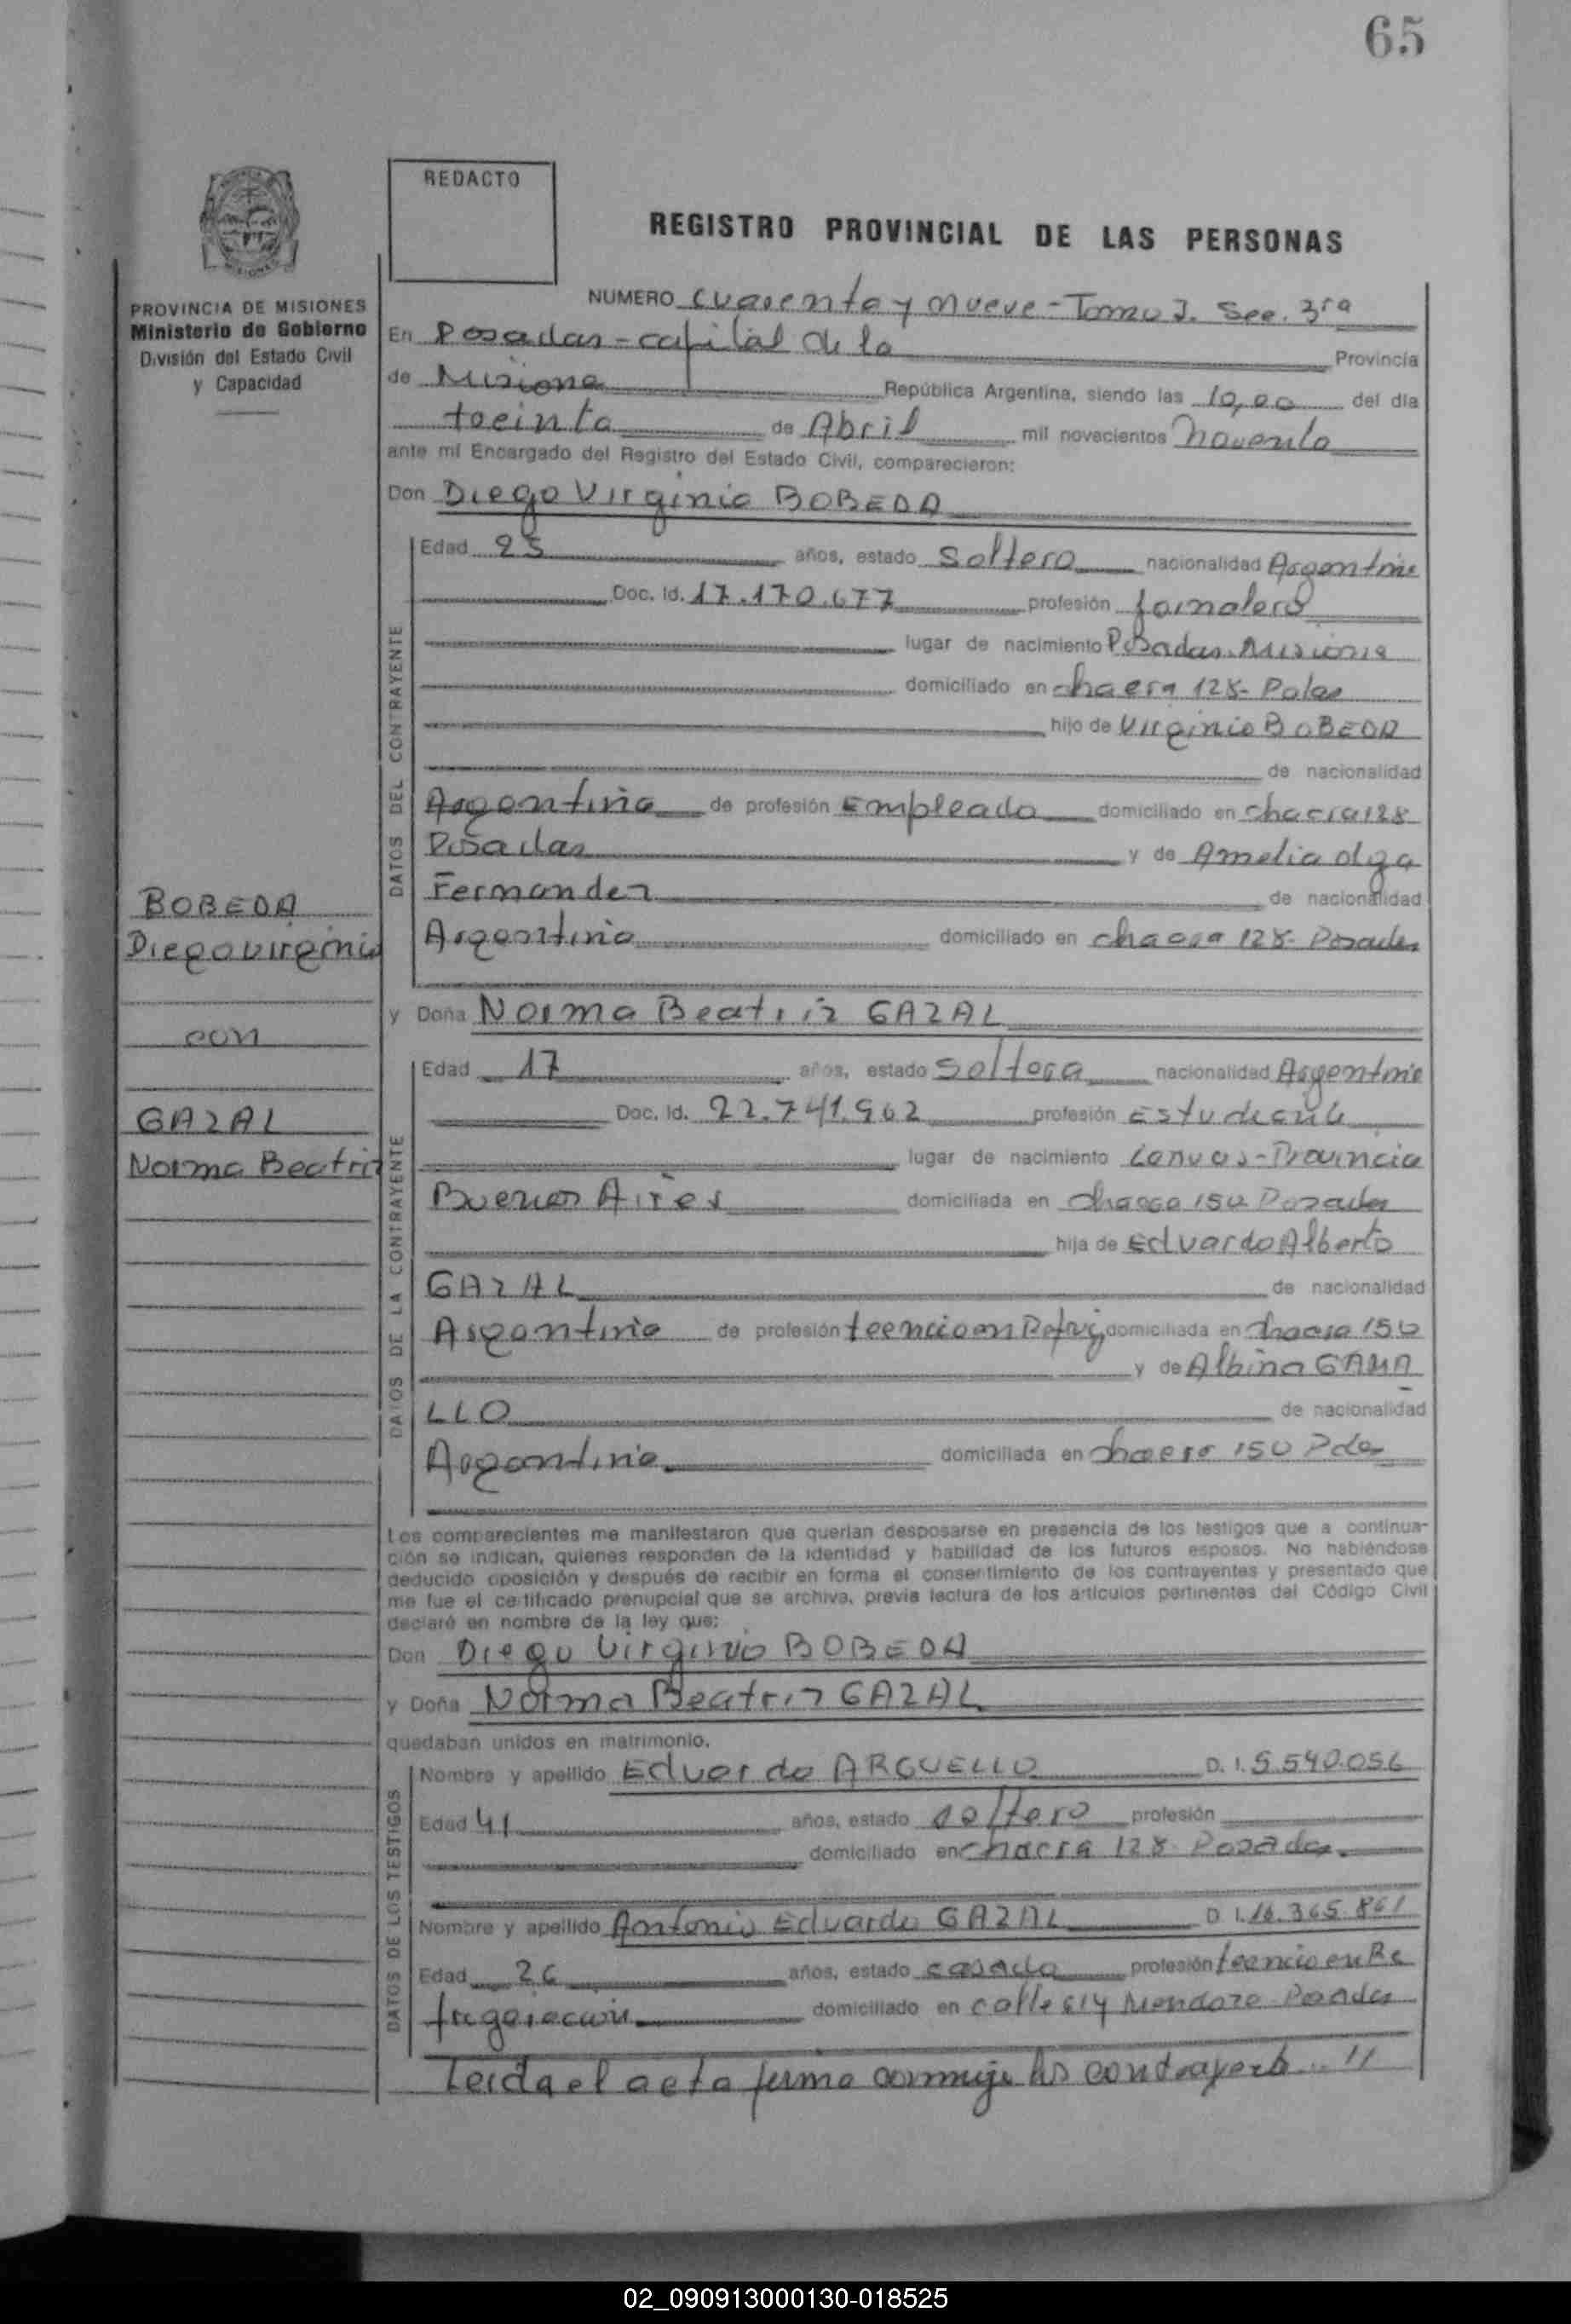 65
REDACTO
REGISTRO PROVINCIAL DE LAS PERSONAS
PROVINCIA DE MISIONES
Ministerio de Gobierno
División del Estado Civil
y Capacidad
NUMERO cuarenta y nueve - Tomo I. Sec. 3ra
En Posadas - capital de la Provincia
de Misiones República Argentina, siendo las 10,00 del día
treinta de Abril mil novecientos noventa
ante mí Encargado del Registro del Estado Civil, comparecieron:
Don Diego Virginio BOBEDA
DATOS DEL CONTRAYENTE
Edad 25 años, estado soltero nacionalidad Argentina
Doc. Id. 17.170.677 profesión Jornalero
lugar de nacimiento Posadas. Misiones
domiciliado en chacra 128-
hijo de Virginio BOBEDA
de nacionalidad
Argentina de profesión Empleado domiciliado en chacra 128
Posadas y de Amelia Olga
Fernandez de nacionalidad
Argentina domiciliado en chacra 128- Posadas
BOBEDA
Diego Virginio
con
GAZAL
Norma Beatriz
y Doña Norma Beatriz GAZAL
DATOS DE LA CONTRAYENTE
Edad 17 años, estado Soltera nacionalidad Argentina
Doc. Id. 22.741.962 profesión Estudiante
lugar de nacimiento Lanus - Provincia
Buenos Aires domiciliada en chacra 150 Posadas
hija de Eduardo Alberto
GAZAL de nacionalidad
Argentina de profesión tecnico en Refrig. domiciliada en chacra 150
y de Albina GAMA
LLO de nacionalidad
Argentina domiciliada en chacra 150 Pdas
Los comparecientes me manifestaron que querían desposarse en presencia de los testigos que a continua-
ción se indican, quienes responden de la identidad y habilidad de los futuros esposos. No habiéndose
deducido oposición y después de recibir en forma el consentimiento de los contrayentes y presentado que
me fue el certificado prenupcial que se archiva, previa lectura de los artículos pertinentes del Código Civil
declaré en nombre de la ley que:
Don Diego Virginio BOBEDA
y Doña Norma Beatriz GAZAL
quedaban unidos en matrimonio.
DATOS DE LOS TESTIGOS
Nombre y apellido Eduardo ARGUELLO D. I. 5.540.056
Edad 41 años, estado soltero profesión
domiciliado en chacra 128- Posadas.
Nombre y apellido Antonio Eduardo GAZAL D. I. 16.365.861
Edad 26 años, estado casado profesión tecnico en Re
frigeracion domiciliado en calle 614 Mendoza Posadas
Leida el acta firma conmigo los contrayente //
02_090913000130-018525